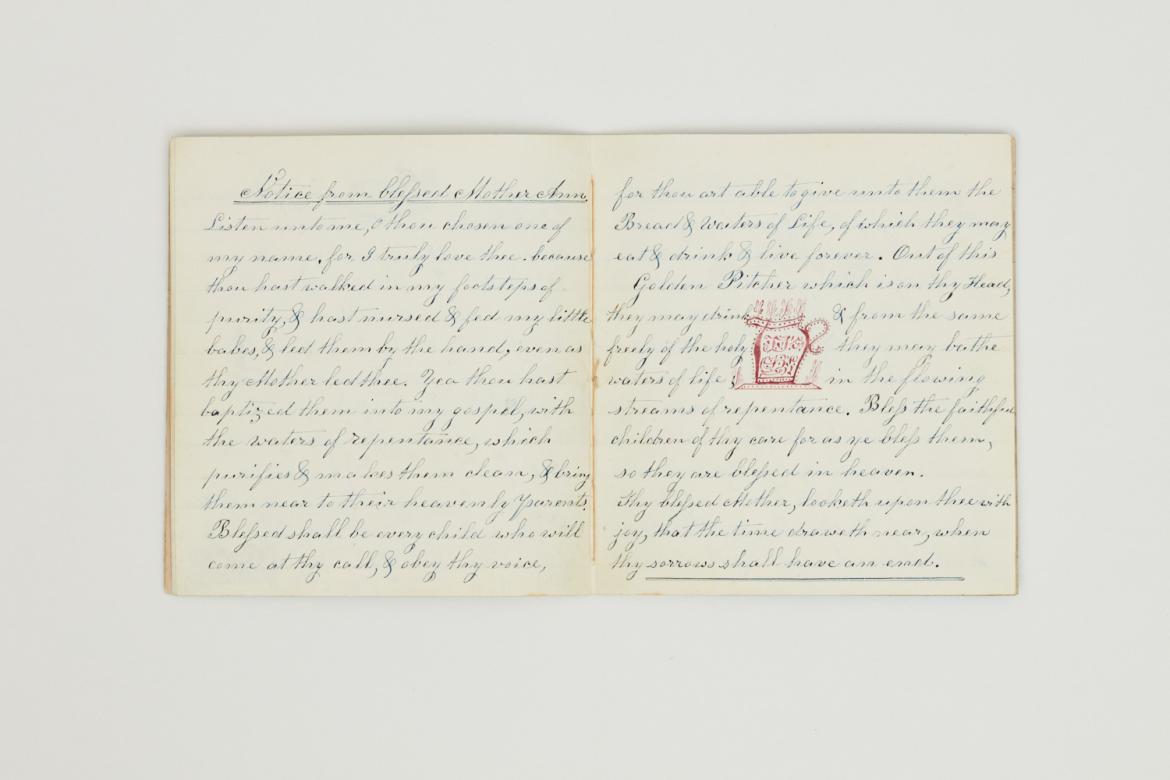 Notice from blessed Mother Ann.
Listen unto me, O thou chosen one of
my name, for I truly love thee. because
thou hast walked in my footsteps of
purity, & hast nursed & fed my little
babes, & led them by the hand, even as
thy Mother led thee. Yea thou hast
baptized them into my gospel, with
the waters of repentance, which
purifies & makes them clean, & bring
them near to their heavenly Parents.
Blessed shall be every child who will
come at thy call, & obey thy voice,
for thou art able to give unto them the
Bread & Waters of Life, of which they may
eat & drink & live forever. Out of this
Golden Pitcher which is on thy Head,
they may drink & from the same
freely of the holy they may bathe
waters of life, in the flowing
streams of repentance. Bless the faithful
children of thy care for as ye bless them,
so they are blessed in heaven.
Thy blessed Mother, looketh upon thee with
joy, that the time draweth near, when
thy sorrows shall have an end.